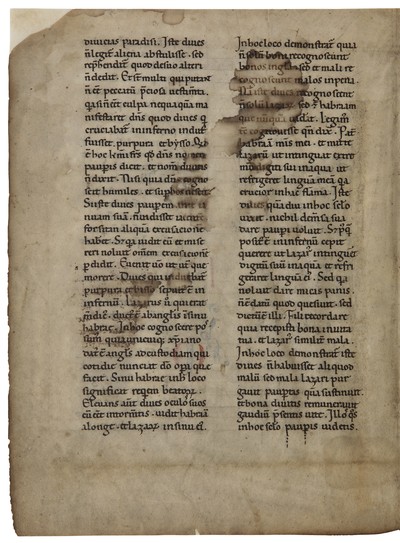 diuicias paradisi. Iste diues
n̄ legit̄ aliena abstulisse. sed
rep̄hendit̄ quod de suo alteri
n̄ dedit. Et st̄ multi qui putant
n̄ ēē peccatū p̄ciosa uestim̄ta.
q̄ si n̄ ēēt culpa nequaquā ma
nifestaret dn̄s quod diues q̄
cruciabat̄ in inferno indut̄
fuisset purpura et bysso.
hoc
pauperis dicit. et nom̄ diuitis
n̄ dixit.
scit humiles. et supbos nescit
Si iste diues paupem
iānuam suā. n̄ uidisset iacentē
forsitan aliquā excusatione
habet. Sz q̄a uidit eū et mise
reri noluit om̄em excusationē
p̄didit. Euenit uō ut ut̄q̄ue
morerēt̄. Diues qui
purpura et bisso sepult̄ ē in
infernū. Lazarus
mdiē. duct̄ ē ab angelis in sinū
habrae. In hoc cognoscere pos
sum̄ quia unicuiq̄; xp̄iano
dat̄ ē angl̄s ad custodiam qui
cotidie nunciat dō opa que
facit. Sinu habrae in h̄ loco
significat regem beatorꝝ.
Eleuans aut̄ diues oculo suos
cū ēēt in torm̄tis. uidit habrāā
a longe. et lazarꝝ in sinu ei.
In hoc loco demonstrat̄ quia
n̄ solū boni recognoscunt
bonos in sed et mali re
cognoscunt malos in pena.
iste diues recognosceret
n̄ solū lazarꝝ sed et habraam
que nūquā uiderat. Legim̄
eē cognouisse qn̄ dix̄. Pat̄
habraā mis̄ mei. et mitte
lazarū ut intinguat extre
mū digiti sui in aqua ut
refrigeret linguā meā. q̄a
crucior in hac flama. Iste
diues q̄a diu in hoc sclo
uixit. nichil dem̄ sua sua
dare paupi uoluit.
postē ē in infernū cepit
querere ut lazar̄ intinguet
digitū suū in aqua et refri
geraret linguā ei. Sed q̄a
noluit dare micas panis.
n̄ ē datū quod quesiuit. sed
dictū ē illi. Fili recordare
quia recepisti bona in uita
tua. et lazar̄ similit̄ mala.
In hoc loco demonstrat̄ iste
diues n̄ habuisse aliquod
malū sed mala lazari pur
gauit paupertas quā sustinuit.
et bona diuitis remunerauit
gaudiū p̄sentis uite. Illo
in hoc sclo pauperis uidetis.